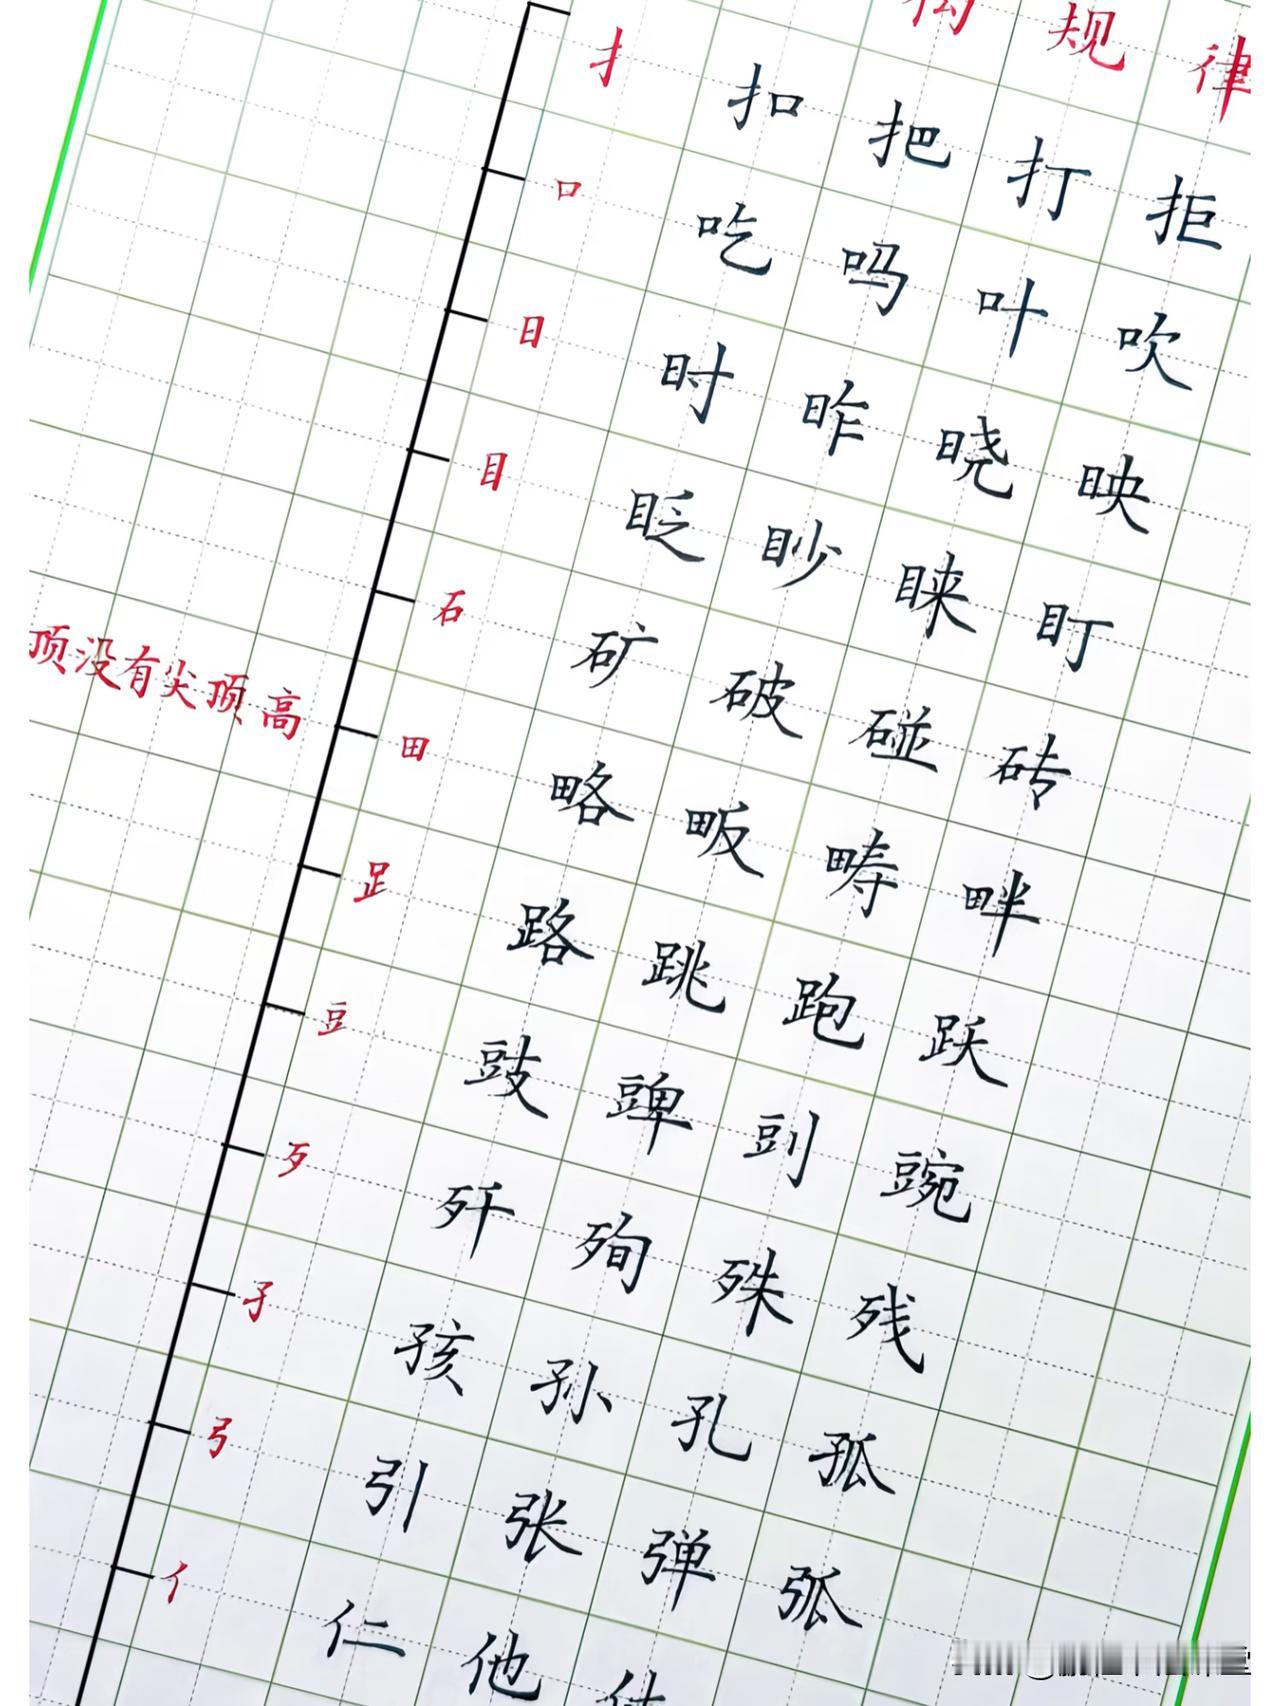 构规律
扌 扣 把 打 拒
口 吃 吗 叶 吹
日 时 昨 晓 映
目 眨 眇 睐 盯
石 矿 破 碰 砖
顶没有尖顶高
田 略 畈 畴 畔
𧾷 路 跳 跑 跃
豆 豉 豍 剅 豌
歹 歼 殉 殊 残
子 孩 孙 孔 孤
弓 引 张 弹 弧
亻 仁 他